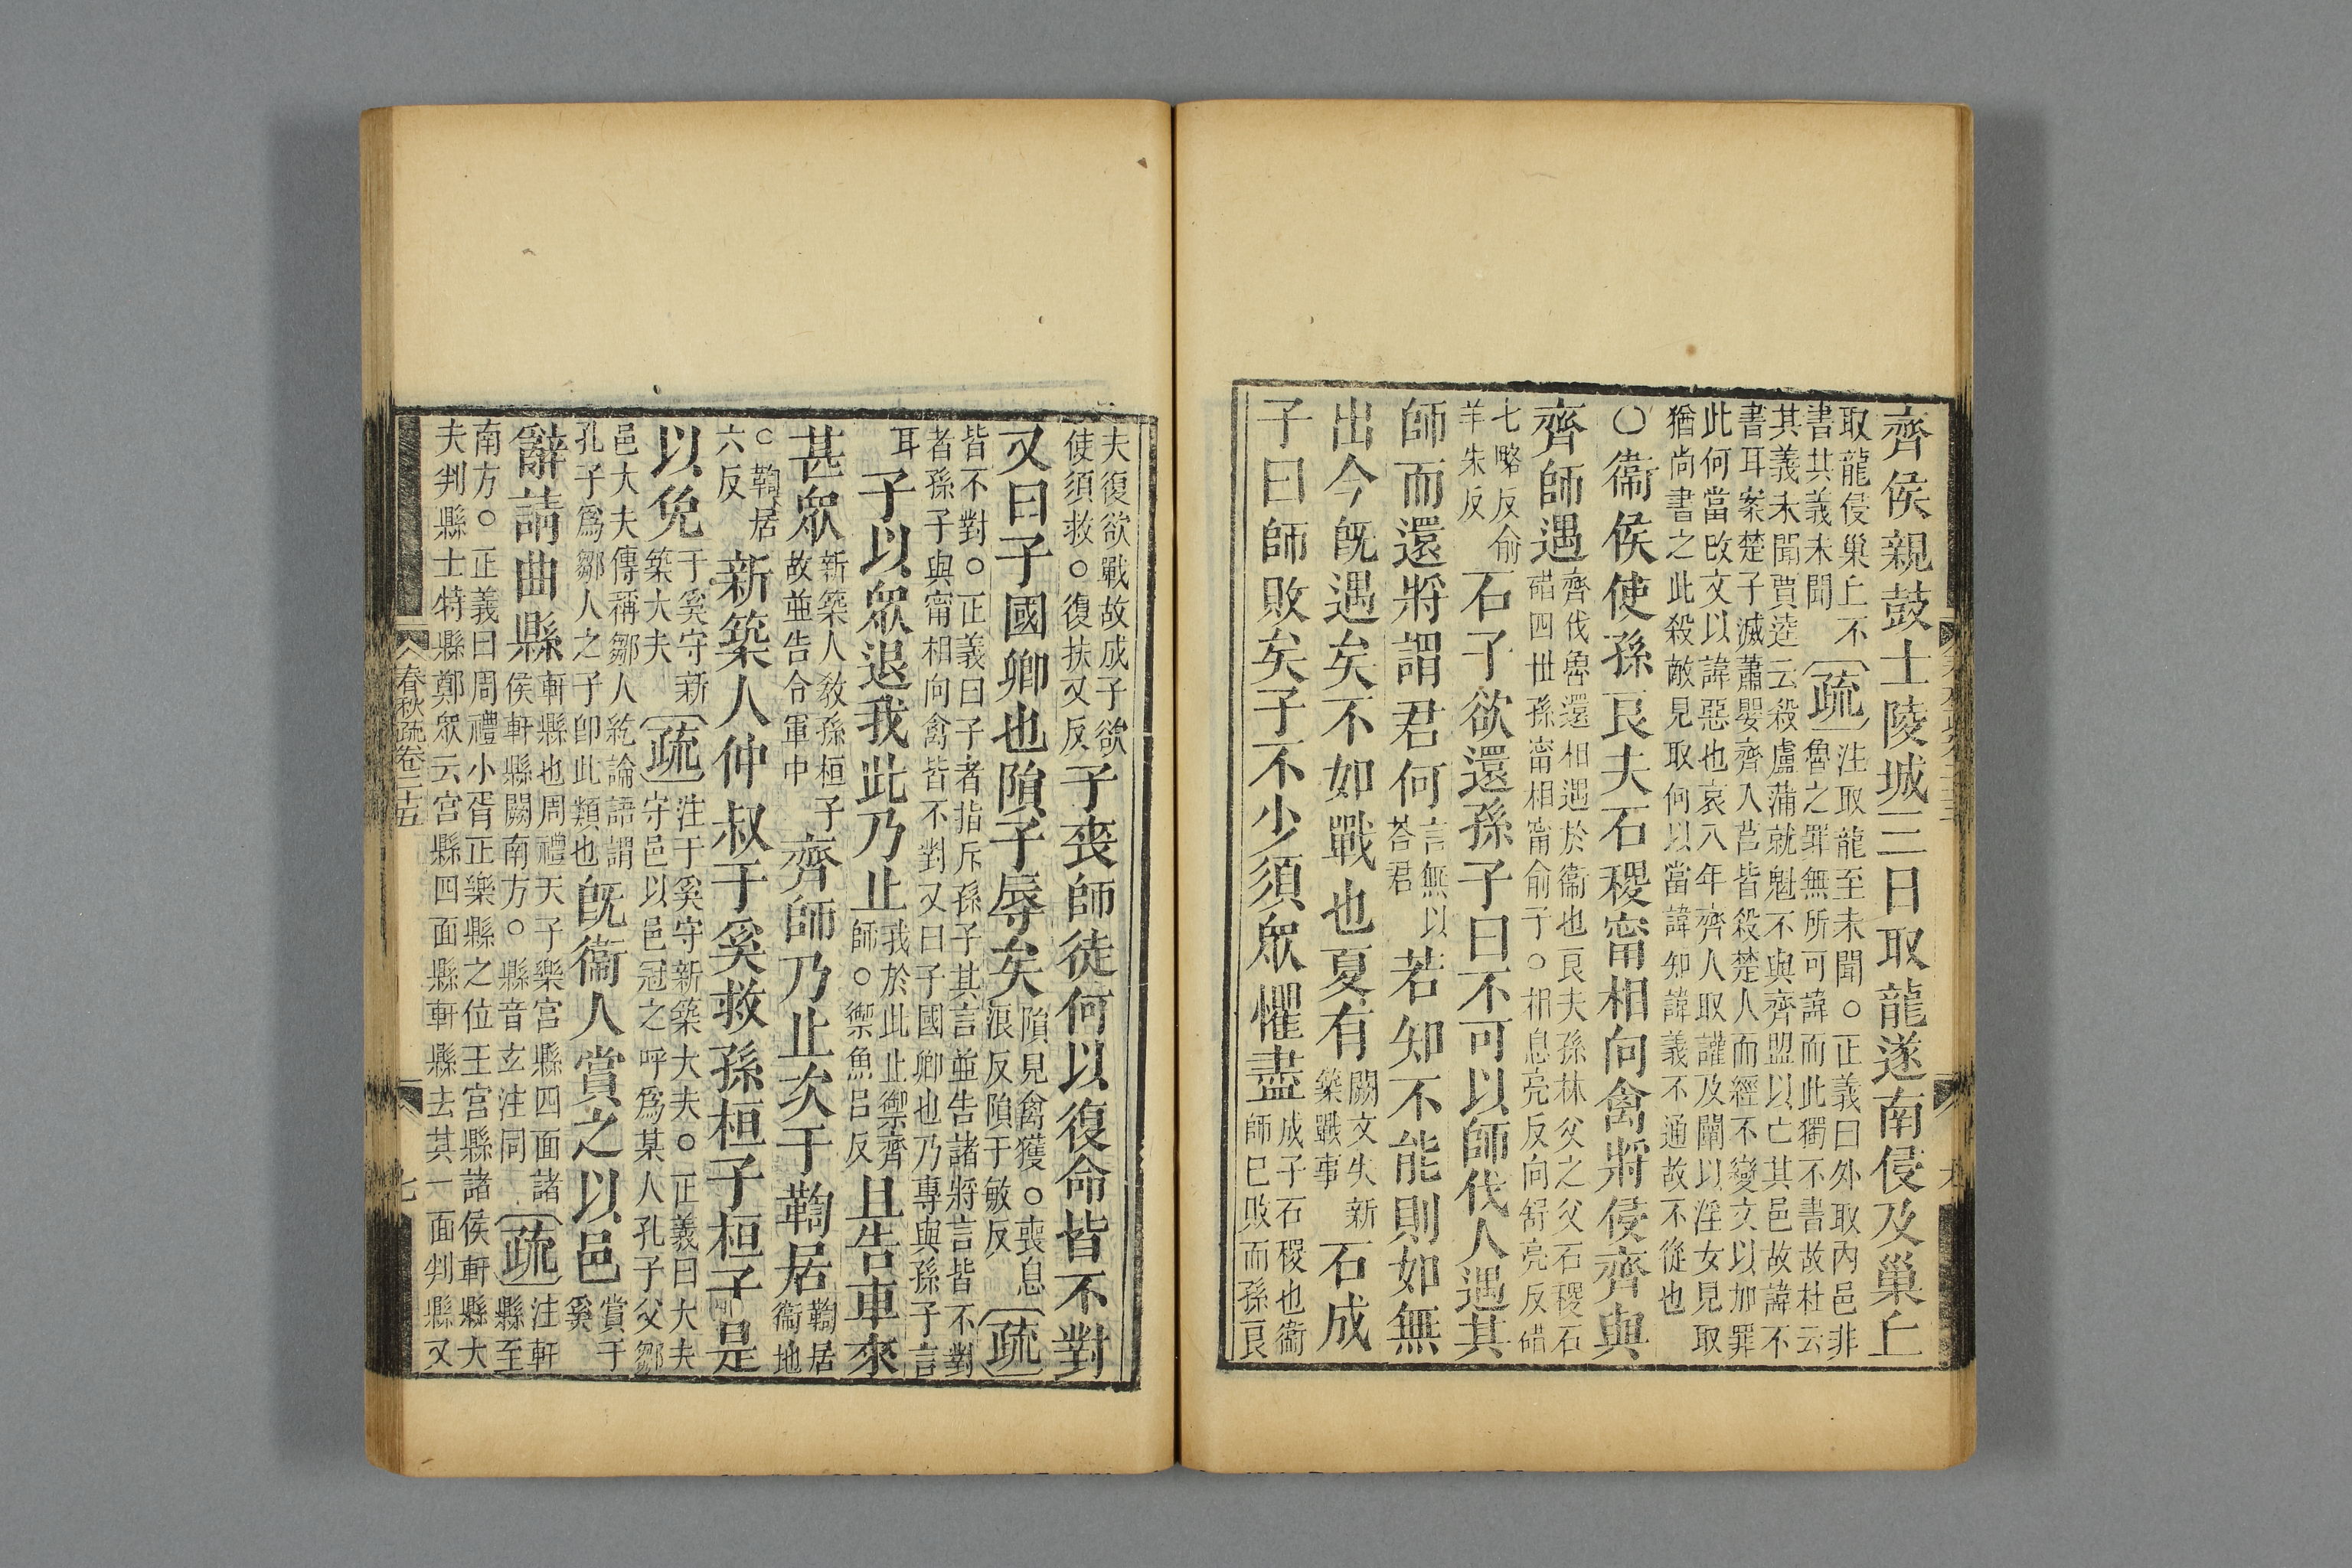 齊侯親鼓士陵城三日取龍遂南侵及巢丘
取龍侵巢丘不
書其義未聞
疏
注取龍至未聞○正義曰外取內邑非
魯之罪無所可諱而此獨不書故杜云
其義未聞賈逵云殺盧蒲就魁不與齊盟以亡其邑故諱不
書耳案楚子滅蕭嬰齊入莒皆殺楚人而經不變文以加罪
此何當改文以諱惡也哀八年齊人取讙及闡以淫女見取
猶尚書之此殺敵見取何以當諱知諱義不通故不從也
○衞侯使孫良夫石稷甯相向禽將侵齊與
齊師遇
齊伐魯還相遇於衞也良夫孫林父之父石稷石
碏四世孫甯相甯俞子○相息亮反向舒亮反碏
七略反俞
羊朱反
石子欲還孫子曰不可以師伐人遇其
師而還將謂君何
言無以
荅君
若知不能則如無
出今旣遇矣不如戰也夏有
闕文失新
築戰事
石成
子曰師敗矣子不少須眾懼盡
成子石稷也衞
師已敗而孫良
夫復欲戰故成子欲
使須救○復扶又反
子喪師徒何以復命皆不對
又曰子國卿也隕子辱矣
隕見禽獲○喪息
浪反隕于敏反
疏
皆不對○正義曰子者指斥孫子其言並告諸將言皆不對
者孫子與甯相向禽皆不對又曰子國卿也乃專與孫子言
耳
子以眾退我此乃止
我於此止禦齊
師○禦魚呂反
且告車來
甚眾
新築人救孫桓子
故並告令軍中
齊師乃止次于鞫居
鞫居
衞地
○鞫居
六反
新築人仲叔于奚救孫桓子桓子是
以免
于奚守新
築大夫
疏
注于奚守新築大夫○正義曰大夫
守邑以邑冠之呼爲某人孔子父鄹
邑大夫傳稱鄹人紇論語謂
孔子爲鄹人之子卽此類也
旣衞人賞之以邑
賞于
奚
辭請曲縣
軒縣也周禮天子樂宮縣四面諸
侯軒縣闕南方○縣音玄注同
疏
注軒
縣至
南方○正義曰周禮小胥正樂縣之位王宮縣諸侯軒縣大
夫判縣士特縣鄭眾云宮縣四面縣軒縣去其一面判縣又
春秋疏卷二十五
七